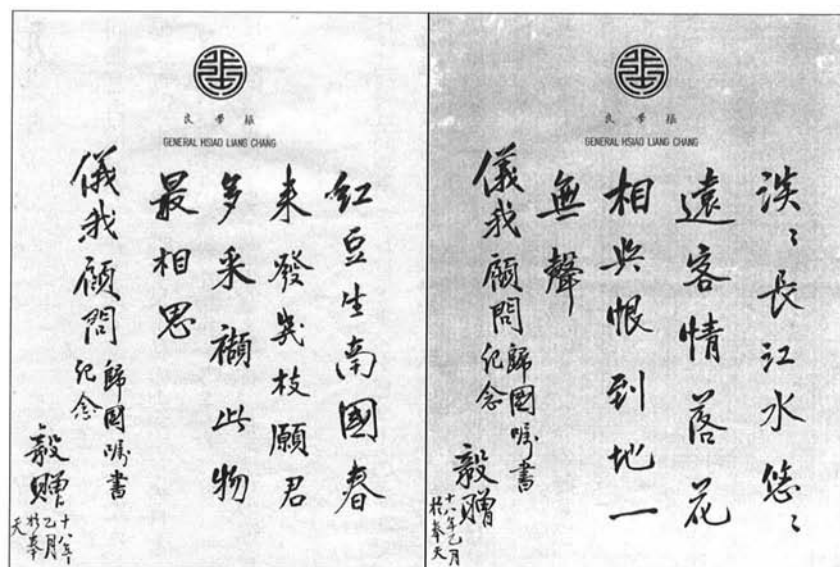 張學良
GENERAL HSIAO LIANG CHANG
紅豆生南國春
来發幾枝願君
多采擷此物
最相思
儀我顧問
歸國嘱書
紀念
毅贈
十八年
乙月
於奉
天
張學良
GENERAL HSIAO LIANG CHANG
淡〻長江水悠〻
遠客情落花
相与恨到地一
無聲
儀我顧問
歸國嘱書
紀念
毅贈
十八年乙月
於奉天